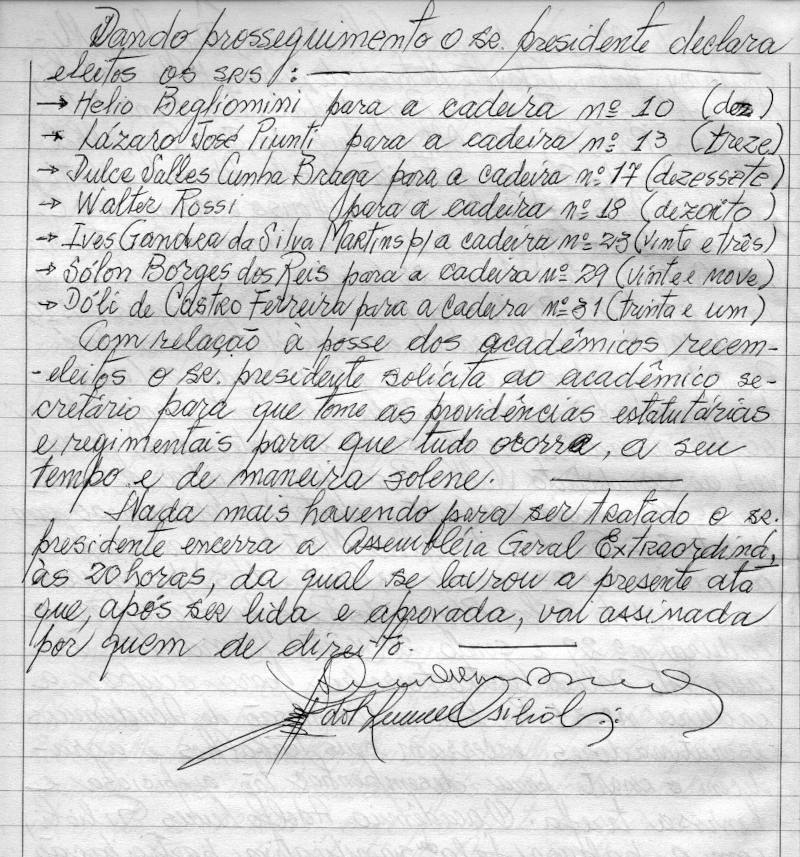 Dando prosseguimento o sr. presidente declara
eleitos os srs:
→ Helio Begliomini para a cadeira nº 10 (dez)
→ Lázaro José Piunti para a cadeira nº 13 (treze)
→ Dulce Salles Cunha Braga para a cadeira nº 17 (dezessete)
→ Walter Rossi para a cadeira nº 18 (dezoito)
→ Ives Gandra da Silva Martins p/ a cadeira nº 23 (vinte e três)
→ Sólon Borges dos Reis para a cadeira nº 29 (vinte e nove)
→ Dóli de Castro Ferreira para a cadeira nº 31 (trinta e um)
Com relação à posse dos acadêmicos recem-
-eleitos o sr. presidente solicita ao acadêmico se-
cretário para que tome as providências estatutárias
e regimentais para que tudo ocorra, a seu
tempo e de maneira solene.
Nada mais havendo para ser tratado o sr.
presidente encerra a Assembléia Geral Extraordiná,
às 20 horas, da qual se lavrou a presente ata
que, após ser lida e aprovada, vai assinada
por quem de direito.